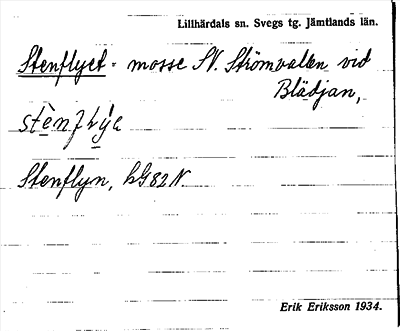 Lillhärdals sn. Svegs tg. Jämtlands län.
Stenflyet = mosse SV. Strömvallen vid
Blädjan,
Stenflyn, bG82N.
Erik Eriksson 1934.